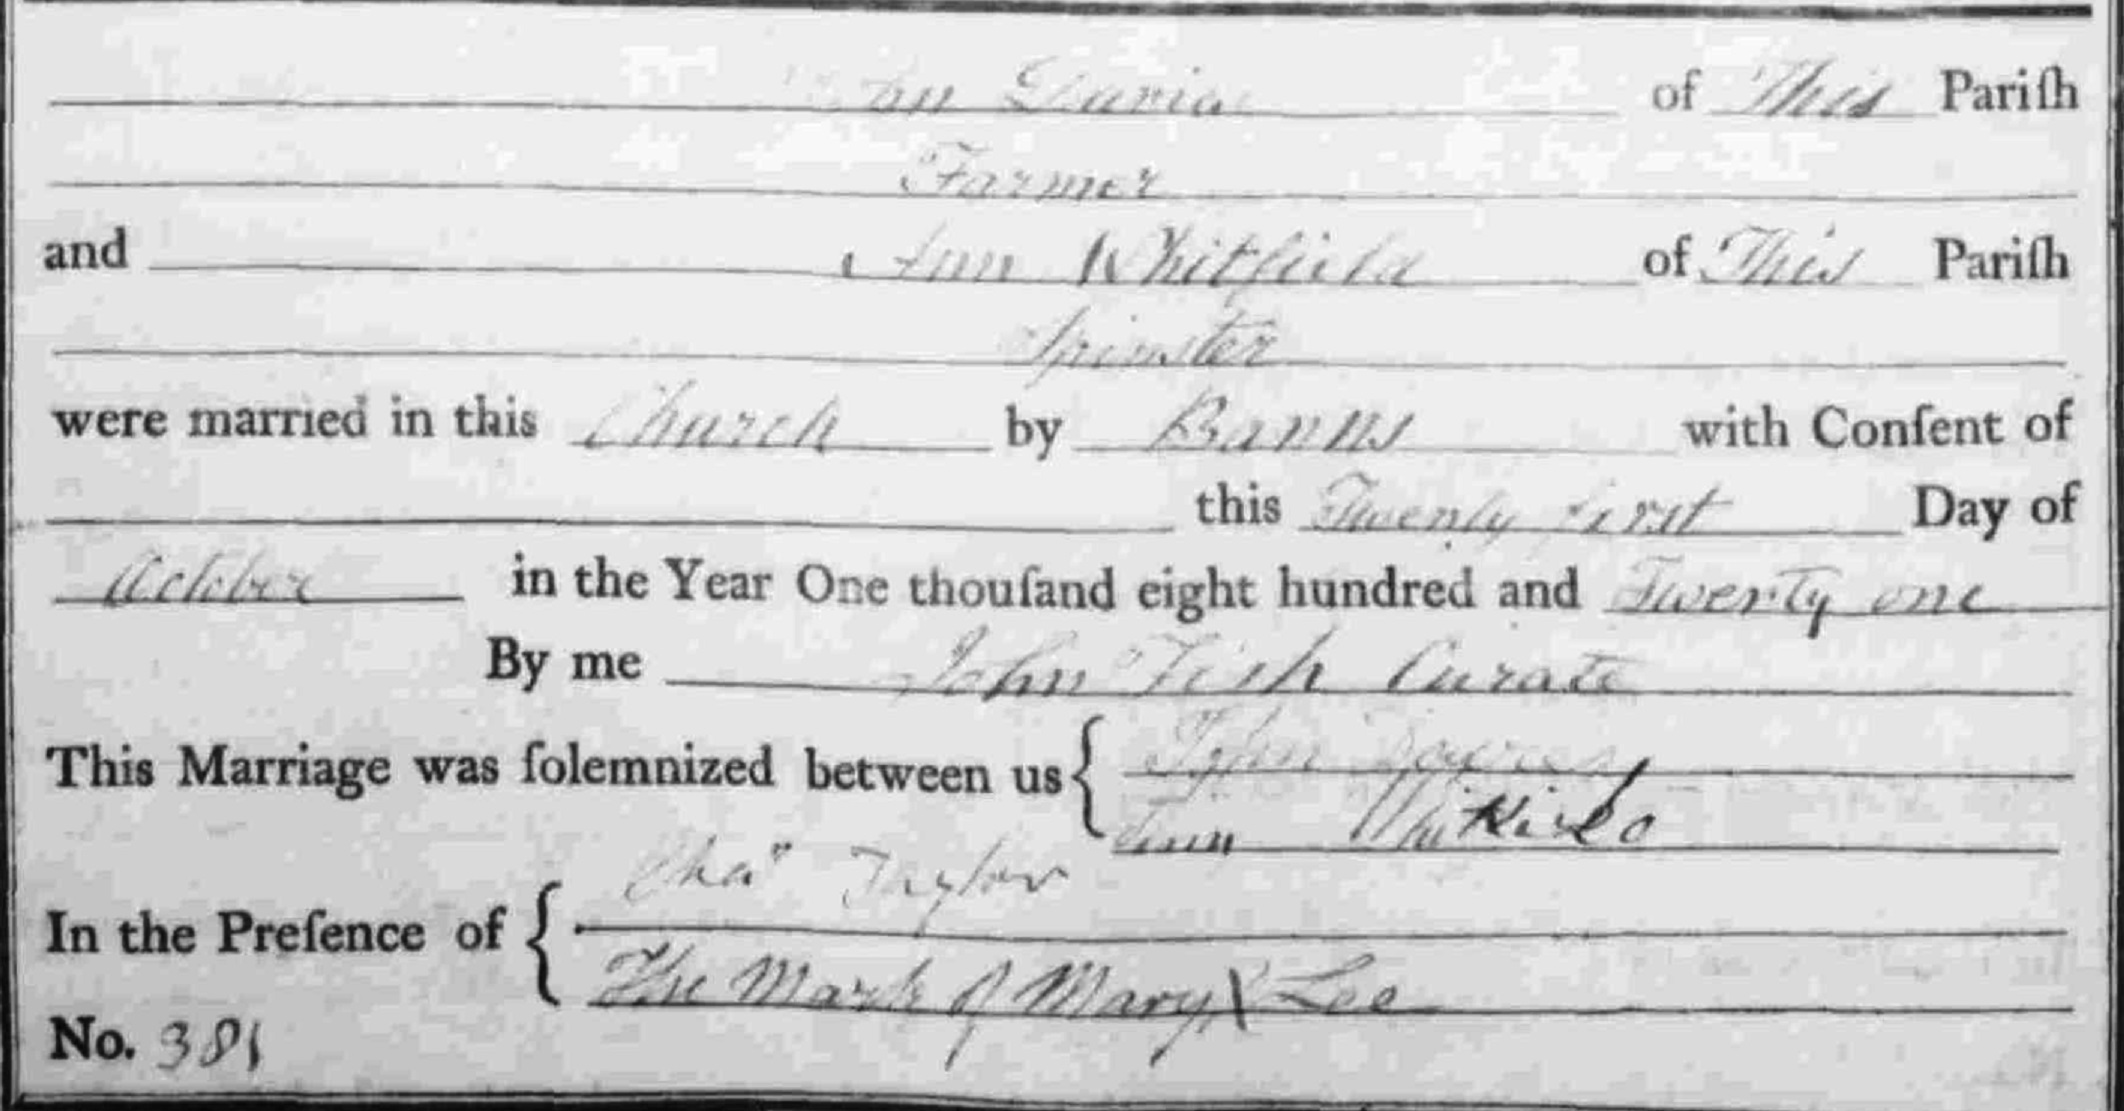 John Davies of This Pariſh
Farmer
and Ann Whitfield of This Pariſh
Spinster
were married in this Church by Banns with Conſent of
this Twenty first Day of
October in the Year One thouſand eight hundred and Twenty one
By me John Fish Curate
This Marriage was ſolemnized between us { John
Ann
Chas Taylor
In the Preſence of {
The Mark of Mary X Lee
No. 381